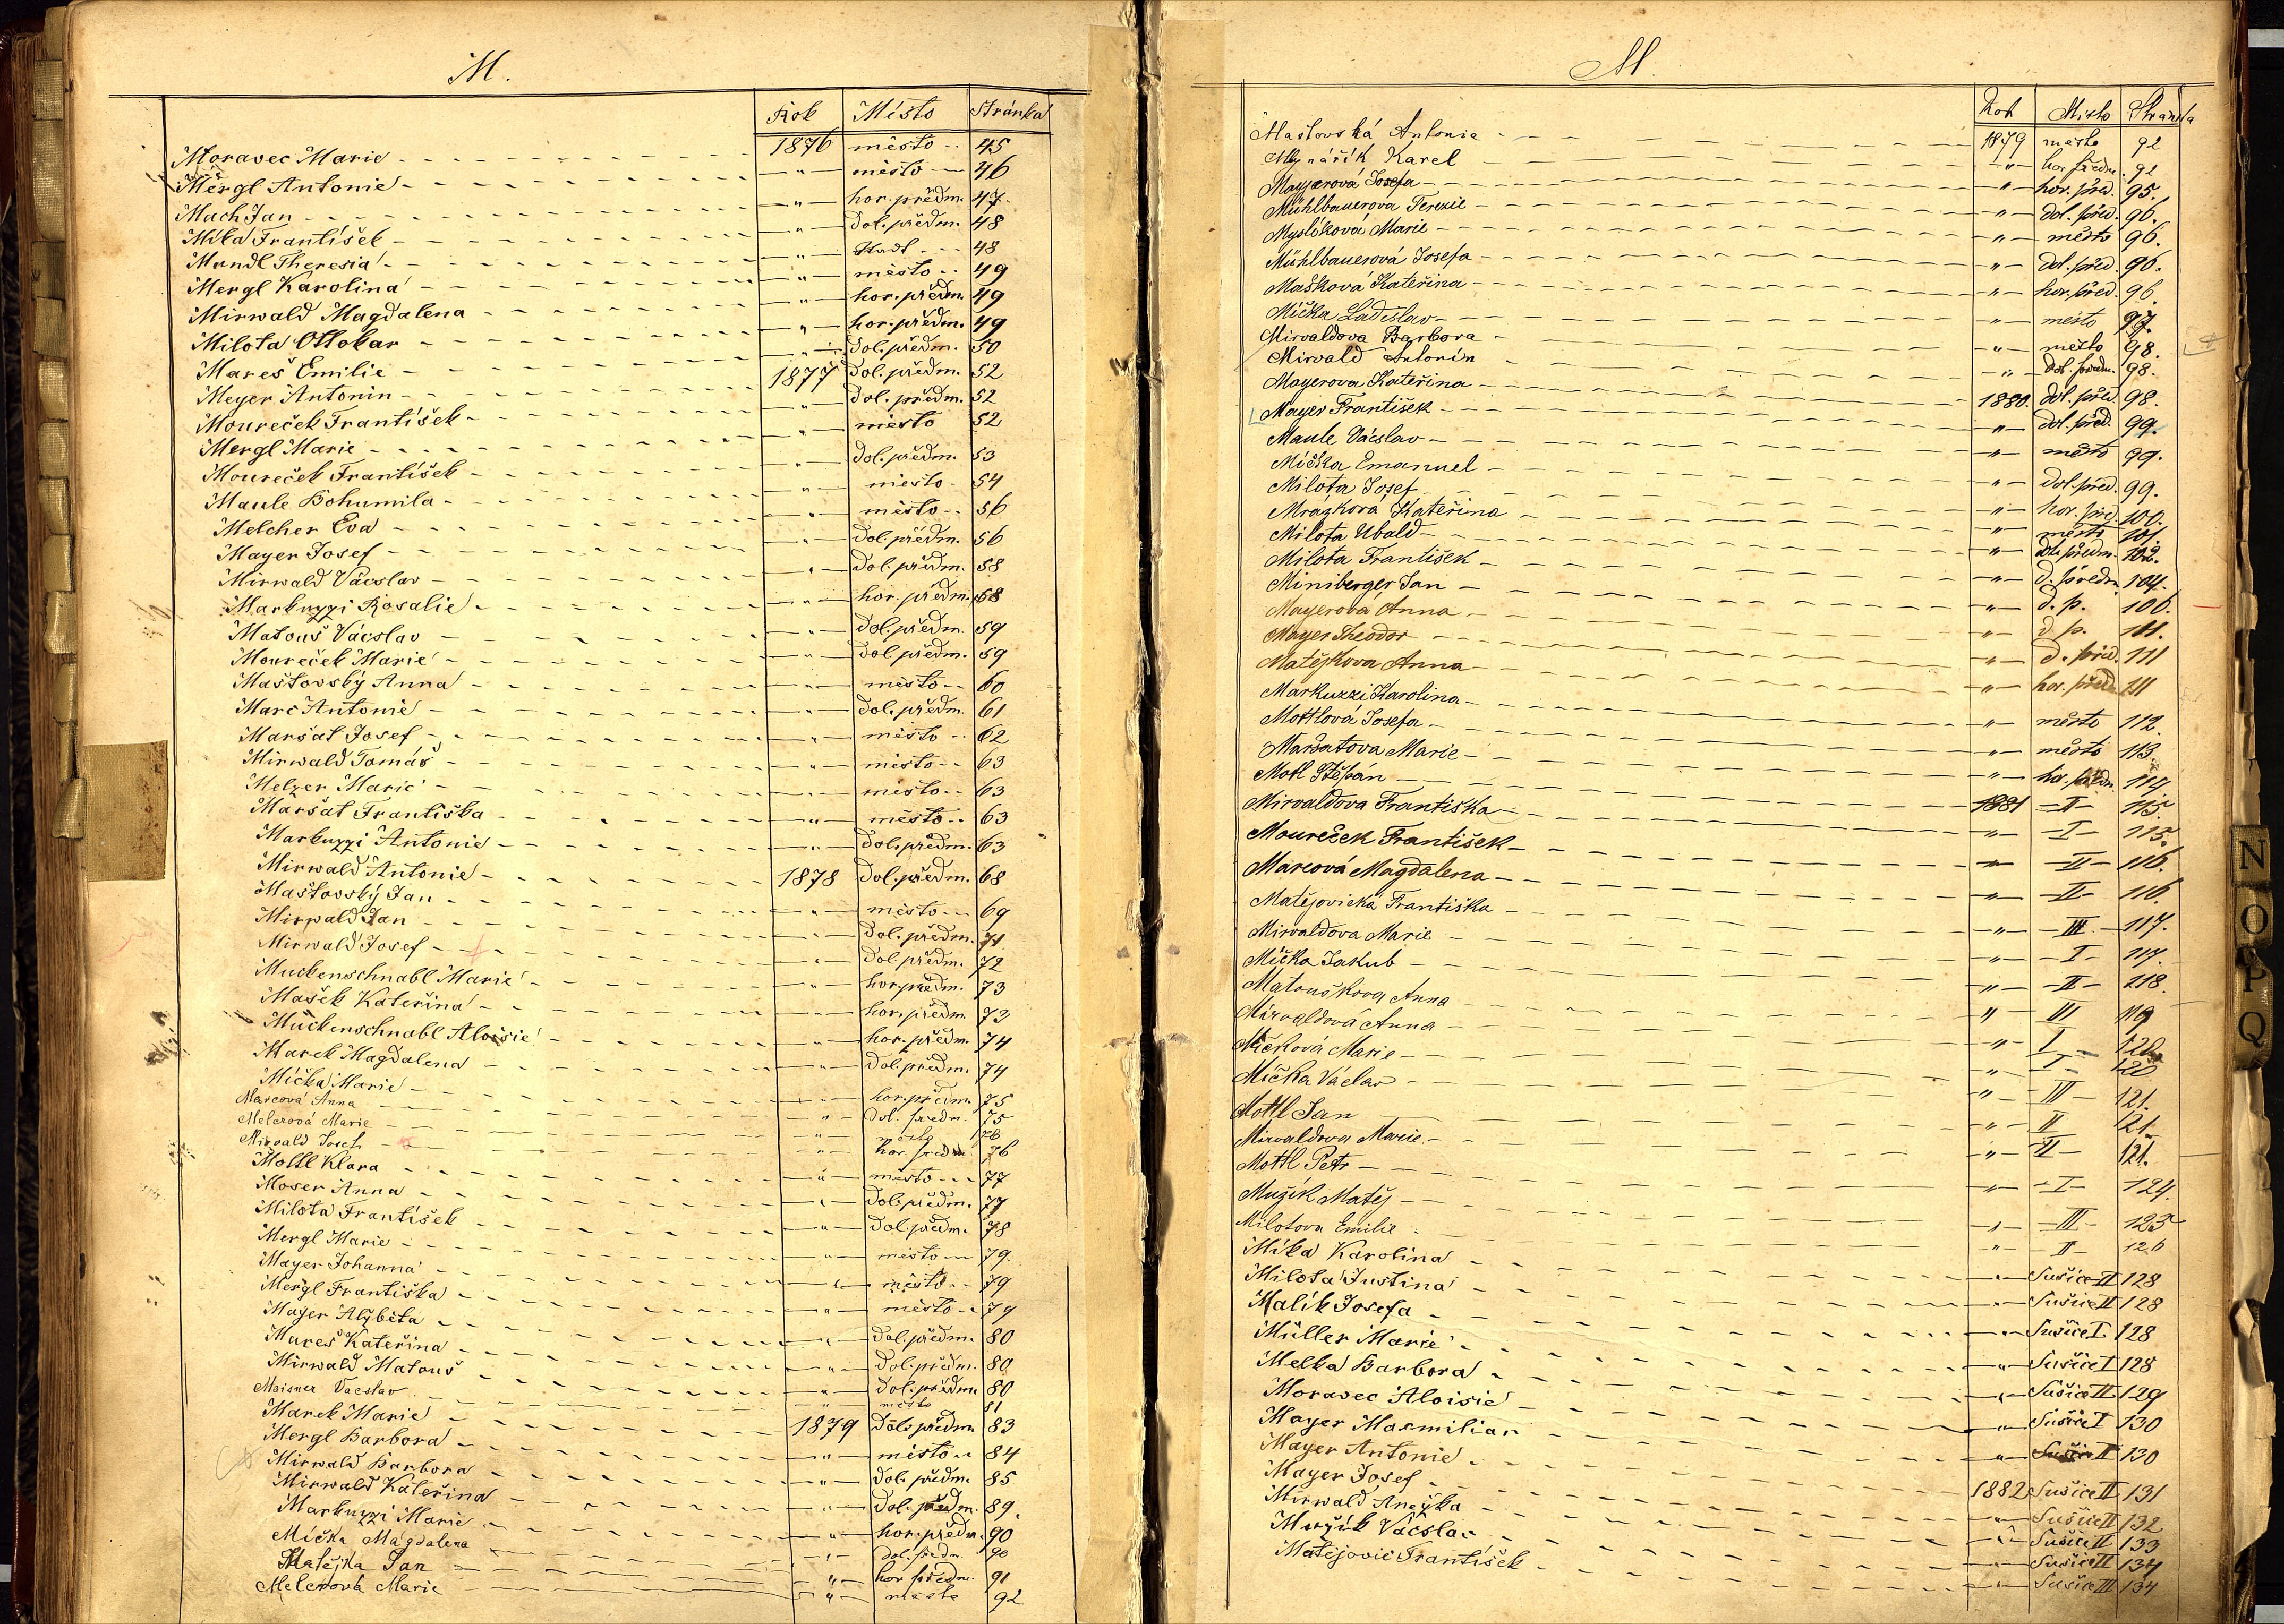 M.
Rok Město Stránka
Moravec Marie 1876 město 45
Mergl Antonie " město 46
Mach Jan " hor. předm. 47
Míka František " Dol. předm. 48
Mandl Theresia " Stadt 48
Mergl Karolina " město 49
Mirwald Magdalena " hor. předm. 49
Milota Ottokar " hor. předm. 49
Mareš Emilie " Dol. předm. 50
Meyer Antonin 1877 Dol. předm. 52
Moureček František " Dol. předm. 52
Mergl Marie " město 52
Moureček František " Dol. předm. 53
Maule Bohumila " město 54
Melcher Eva " město 56
Mayer Josef " Dol. předm. 56
Mirwald Vácslav " Dol. předm. 58
Markuzzi Rosalie " hor. předm. 58
Matouš Vácslav " Dol. předm. 59
Moureček Marie " Dol. předm. 59
Maštovský Anna " město 60
Marc Antonie " Dol. předm. 61
Maršat Josef " město 62
Mirwald Tomáš " město 63
Melzer Marie " město 63
Maršat Františka " město 63
Markuzzi Antonie " Dol. předm. 63
Mirwald Antonie 1878 Dol. předm. 68
Maštovský Jan " město 69
Mirwald Jan " Dol. předm. 71
Mirwald Josef " Dol předm. 72
Muckenschnabl Marie " hor. předm. 73
Mašek Kateřina " hor. předm. 73
Muckenschnabl Aloisie " hor. předm. 74
Marek Magdalena " Dol. předm. 74
Míčka Marie " hor. předm. 75
Marcová Anna " Dol. předm. 75
Melcrová Marie " město 76
Mirvald Josef " hor. předm. 76
Mottl Klara " město 77
Moser Anna " Dol. předm. 77
Milota František " Dol. předm. 78
Mergl Marie " město 79.
Mayer Johanna " město 79
Mergl Františka " město 79
Mayer Alžběta " Dol. předm. 80
Mareš Kateřina " Dol. předm. 80
Mirwald Matouš " Dol. předm. 80
Maisner Vacslav " město 81
Marek Marie 1879 Dol. předm. 83
Mergl Barbora " město 84
Mirwald Barbora " Dol. předm. 85
Mirwald Kateřina " Dol. předm. 89.
Markuzzi Marie " hor. předm. 90
Míčka Magdalena " Dol. předm. 90
Matějka Jan " hor předm. 91
Melcrová Marie " město 92
M.
Rok Místo Stránka
Maštovská Antonie 1879 město 92
Mlynářík Karel " hor. předm. 92
Mayerová Josefa " hor. před. 95.
Mühlbauerova Terezie " dol. před. 96.
Myslíková Marie " město 96.
Mühlbauerová Josefa " dol. před. 96.
Mašková Kateřina " hor. před. 96.
Míčka Ladislav " město 97.
Mirvaldova Barbora " město 98.
Mirvald Antonín " dol. předm. 98.
Mayerova Kateřina 1880. dol. před. 98.
Mayer František " dol. před. 99.
Maule Václav " město 99.
Míčka Emanuel " dol. před. 99.
Milota Josef " hor. před. 100.
Mrázkova Kateřina " město 101.
Milota Ubald " dol. předm. 102.
Milota František " d. předm. 104.
Miniberger Jan " d. p. 106.
Mayerova Anna " d. p. 111.
Mayer Theodor " d. před. 111
Matějkova Anna " hor. předm. 111
Markuzzi Karolina " město 112.
Mottlová Josefa " město 113.
Maršatova Marie " hor. předm. 114
Motl Štěpán 1881 II 115.
Mirvaldova Františka " I 115.
Moureček František " II 116.
Marcová Magdalena " II 116.
Matějovická Františka " III 117.
Mirvaldova Marie " I 117.
Míčka Jakub " II 118.
Matouškova Anna " III 119
Mirvaldová Anna " I 120
Míčková Marie " I 120
Míčka Václav " III 121.
Mottl Jan " II 121.
Mirvaldova Marie " II 121.
Mottl Petr " I 124.
Mužík Matěj " III 125
Milotova Emilie " II 126
Míka Karolina " Sušice II 128
Milota Justina " Sušice II 128
Malík Josefa " Sušice I. 128
Müller Marie " Sušice I 128
Melka Barbora " Sušice II 129
Moravec Aloisie " Sušice I 130
Mayer Maxmilian " Sušice II 130
Mayer Antonie 1882 Sušice II 131
Mayer Josef " Sušice II 132
Mirwald Anežka " Sušice II 133
Mužík Václav " Sušice II 134
Matějovic František " Sušice III 134
N
O
P
Q